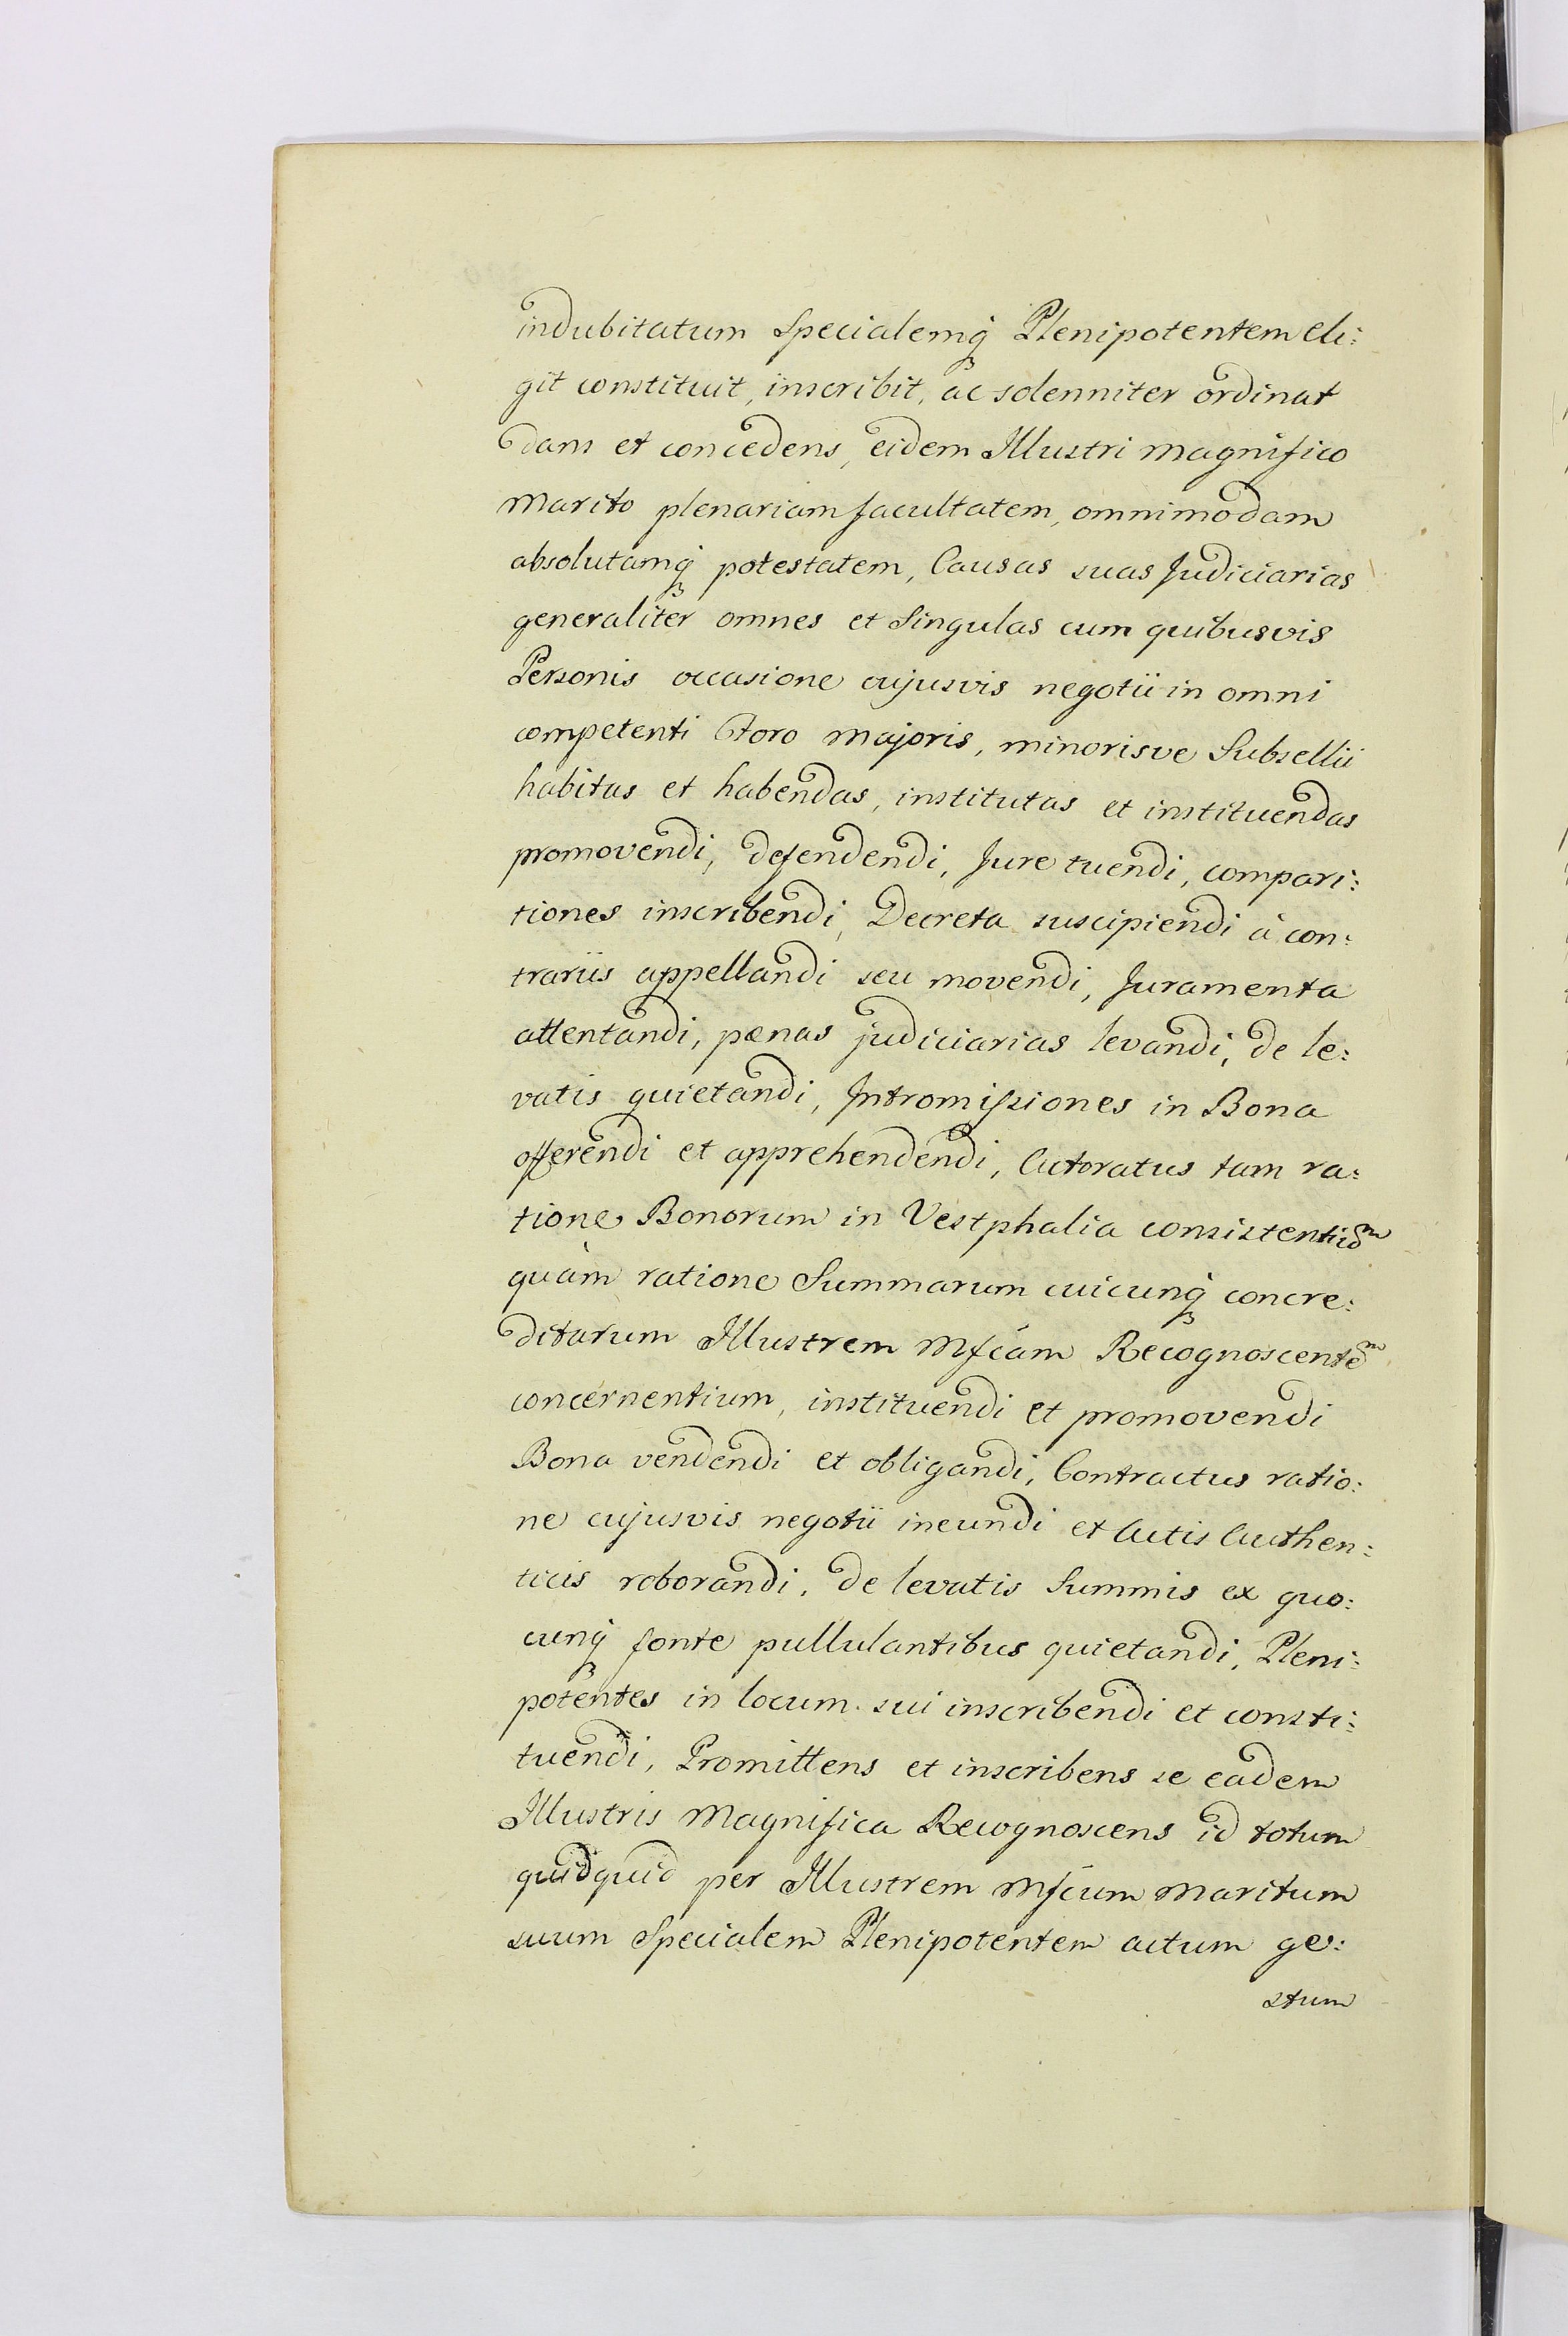 indubitatum Specialemq̃ Plenipotentem eli:
git constituit, inscribit, ac solenniter ordinat
dans et concedens, eidem Illustri Magnifico
Marito plenariam facultatem, omnimodam
absolutamq̃ potestatem, Causas suas Judiciarias
generaliter omnes et Singulas cum quibusvis
Personis occasione cujusvis negotii in omni
competenti Foro majoris, minorisve Subsellii
habitas et habendas, institutas et instituendas
promovendi, defendendi, Jure tuendi, compari:
tiones inscribendi, Decreta suscipiendi à con:
trariis appellandi seu movendi, Juramenta
attentandi, pœnas judiciarias levandi, de le:
vatis quietandi, Intromissiones in Bona
offerendi et apprehendendi, Actoratus tam ra:
tione Bonorum in Vestphalia consistentiũm
quàm ratione Summarum cuicunq̃ concre:
ditarum Illustrem Mfcam Recognoscentem
concernentium, instituendi et promovendi
Bona vendendi et obligandi, Contractus ratio:
ne cujusvis negotii ineundi et Actis Authen:
ticis roborandi, de levatis Summis ex quo:
cunq̃ fonte pullulantibus quietandi, Pleni:
potentes in locum sui inscribendi et consti:
tuendi, Promittens et inscribens se eadem
Illustris Magnifica Recognoscens id totum
quidquid per Illustrem Mfcum Maritum
suum Specialem Plenipotentem actum ge:
stum